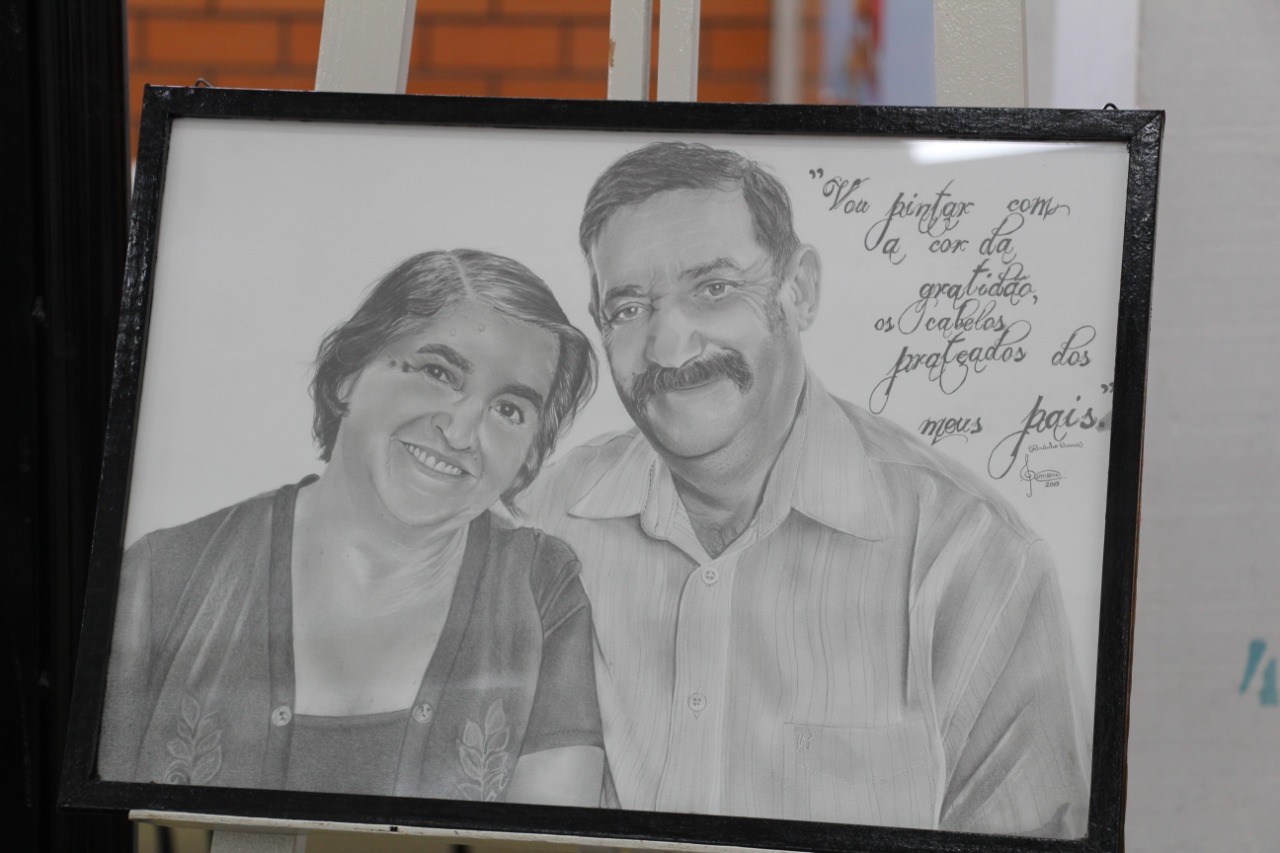 "Vou pintar com
a cor da
gratidão,
os cabelos
prateados dos
meus pais."
2019